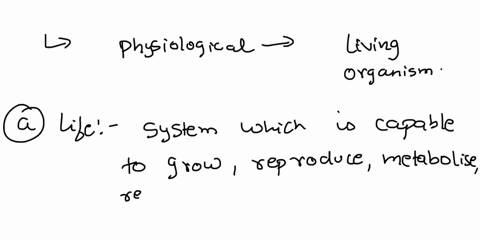 ↳ Physiological → Living
organism.
ⓐ Life:- System which is capable
to grow, reproduce, metabolise,
re